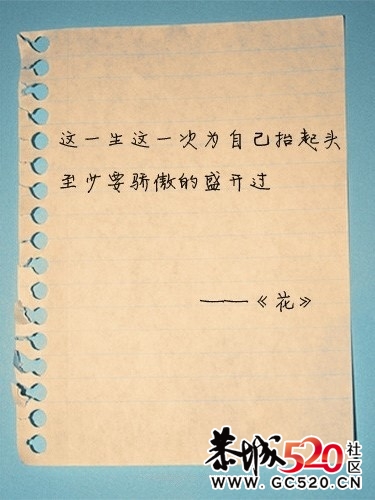 这一生这一次为自己抬起头
至少要骄傲的盛开过
——《花》
恭城520社区
WWW.GC520.CN